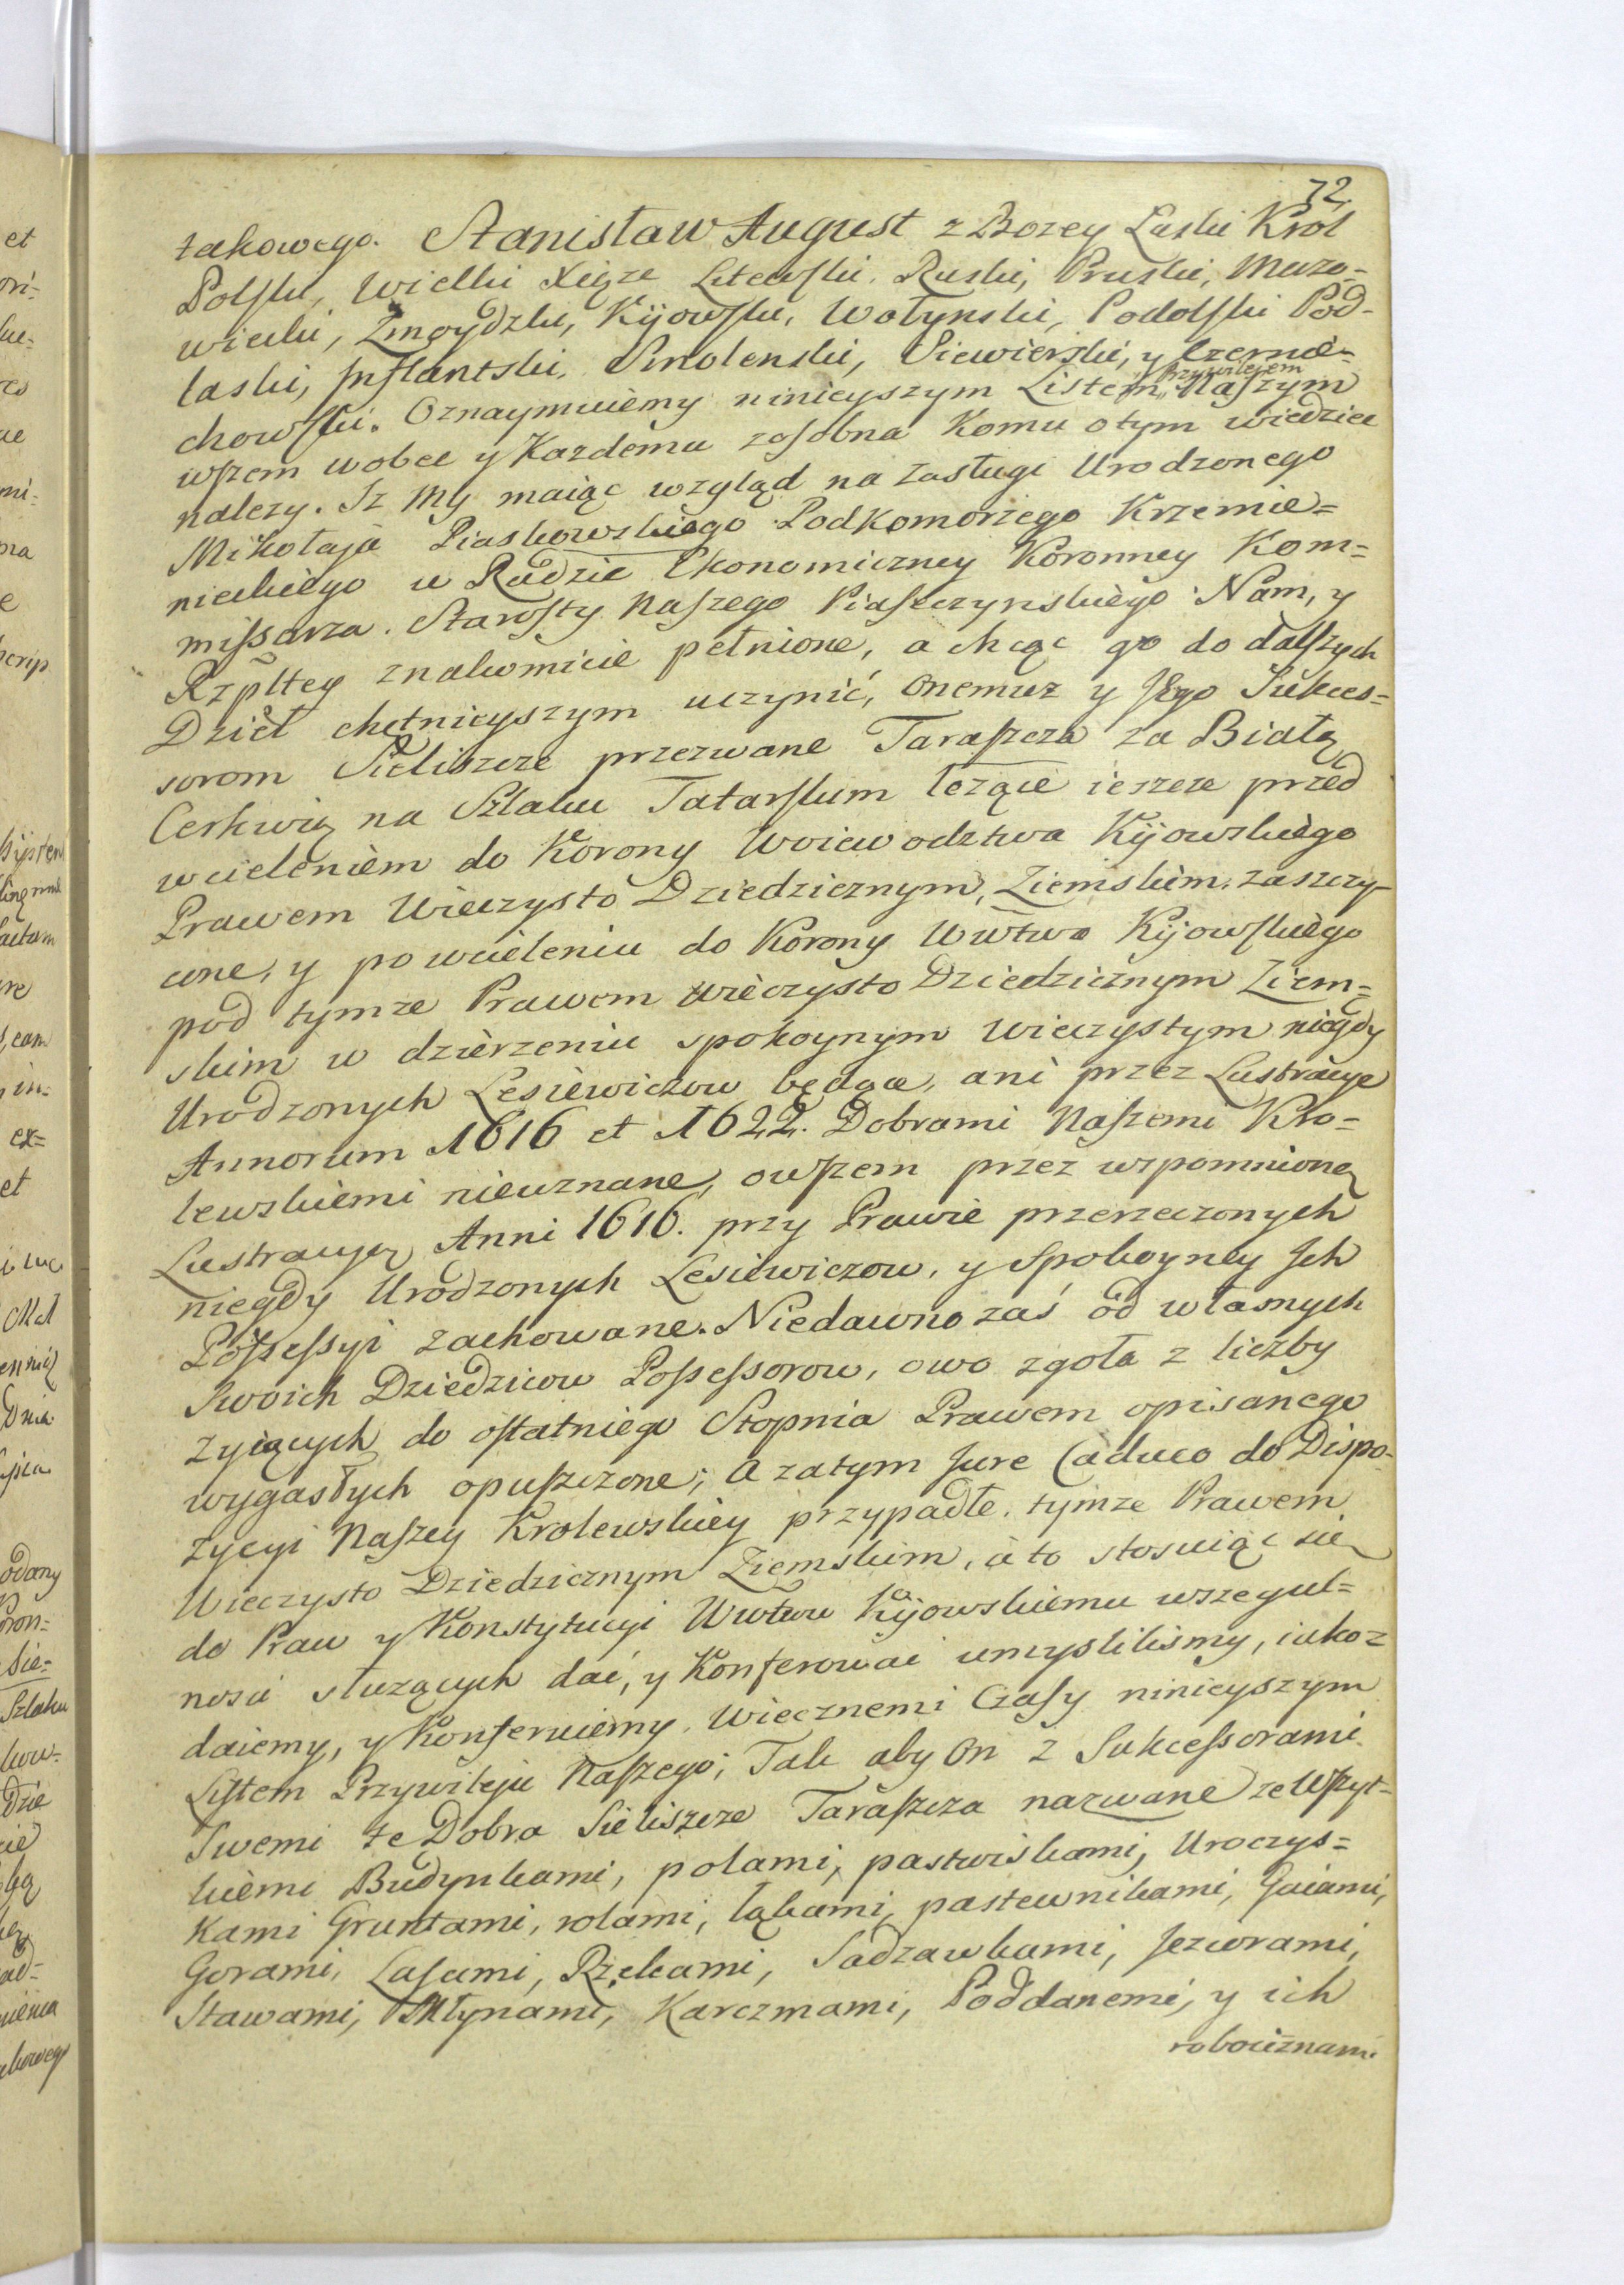 72.
takowego. Stanisław August z Bozey Łaski Krol
Polski, Wielki Xiąze Litewski, Ruski, Pruski, Mazo-
wiecki, Zmoydzki, Kijowski, Wołynski, Podolski Pod-
laski, Inflantski, Smolenski, Siewierski, y Czernie-
chowski. Oznaymuiemy ninieyszym Listem Przywilejem Naszym
wszem wobec y Kazdemu zosobna Komu otym wiedziec
nalezy. Iz My maiąc wzgląd na Zasługi Urodzonego
Mikołaja Piaskowskiego Podkomorzego Krzemie=
nieckiego w Radzie Ekonomiczney Koronney Kom=
missarza. Starosty Naszego Piaszczynskiego Nam, y
Rzpltey znakomicie pełnione, a chcąc go do dalszych
Dzieł chętnieyszym uczynić, onemuz y Jego Sukces=
sorom Sieliszcze przezwane Taraszcza za Białą
Cerkwią na Szlaku Tatarskim lezące ieszcze przed
wcieleniem do Korony Woiewodztwa Kijowskiego
Prawem Wieczysto Dziedzicznym, Ziemskim zaszczy-
cone, y po wcieleniu do Korony Wwtwa Kijowskiego
pod tymze Prawem wieczysto Dziedzicznym Ziem=
skim w dzierzeniu spokoynym wieczystym niegdy
Urodzonych Lesiewiczow będące, ani przez Lustracye
Annorum 1616 et 1622. Dobrami Naszemi Kro=
lewskiemi nieuznane, owszem przez wzpomnioną
Lustracyą Anni 1616. przy Prawie przerzeczonych
niegdy Urodzonych Lesiewiczow, y Spokoyney Ich
Possessyi zachowane. Niedawno zaś od własnych
Swoich Dziedzicow Possessorow, owo zgoła z liczby
Zyiących do ostatniego Stopnia Prawem opisanego
wygasłych opuszczone; a zatym Jure Caduco do Dispo-
zycyi Naszey Krolewskiey przypadłe, tymze Prawem
Wieczysto Dziedzicznym Ziemskim, a to stosuiąc się
do Praw y Konstytucyi Wwtwu Kijowskiemu wszegul=
nosci słuzących dać, y Konferowac umyslilismy, iakoz
daiemy, y Konferuiemy, Wiecznemi Czasy ninieyszym
Listem Przywileju Naszego; Tak aby on z Sukcessorami
Swemi te Dobra Sieliszcze Taraszcza nazwane ze Wszyt-
kiemi Budynkami, polami, pastwiskami, Uroczys=
kami Gruntami, rolami, łąkami, pastewnikami, Gaiami,
Gorami, Lasami, Rzekami, Sadzawkami, Jeziorami,
Stawami, Młynami, Karczmami, Poddanemi, y ich
robociznami